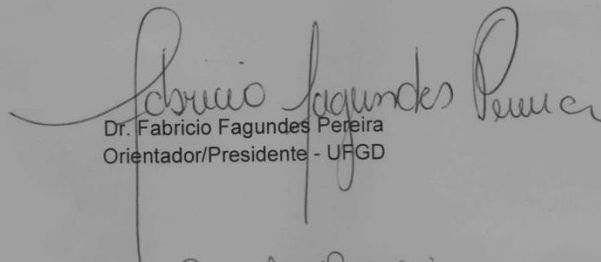 Fabricio Fagundes Pereira
Dr. Fabricio Fagundes Pereira
Orientador/Presidente - UFGD